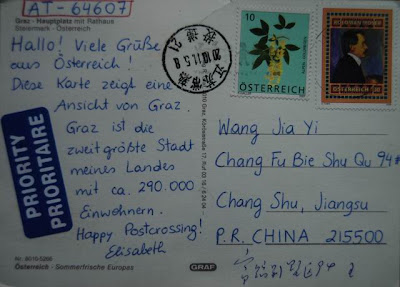 AT-64607
Graz - Hauptplatz mit Rathaus
Steiermark - Österreich
Hallo! Viele Grüße
aus Österreich!
Diese Karte zeigt eine
Ansicht von Graz.
Graz ist die
zweitgrößte Stadt
meines Landes
mit ca. 290.000
Einwohnern.
Happy Postcrossing!
Elisabeth
PRIORITY
PRIORITAIRE
Österreich - Sommerfrische Europas
GRAF
10
ÖSTERREICH
Wang Jia Yi
Chang Fu Bie Shu Qu 94#
Chang Shu, Jiangsu
P.R. CHINA 215500